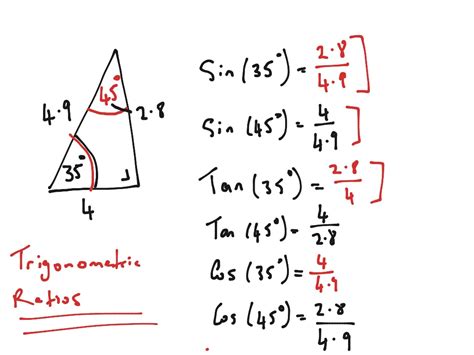 45°
4.9
2.8
35°
4
Trigonometric
Ratios
Sin (35°) = 2.8/4.9]
Sin (45°) = 4/4.9]
Tan (35°) = 2.8/4]
Tan (45°) = 4/2.8
Cos (35°) = 4/4.9
Cos (45°) = 2.8/4.9